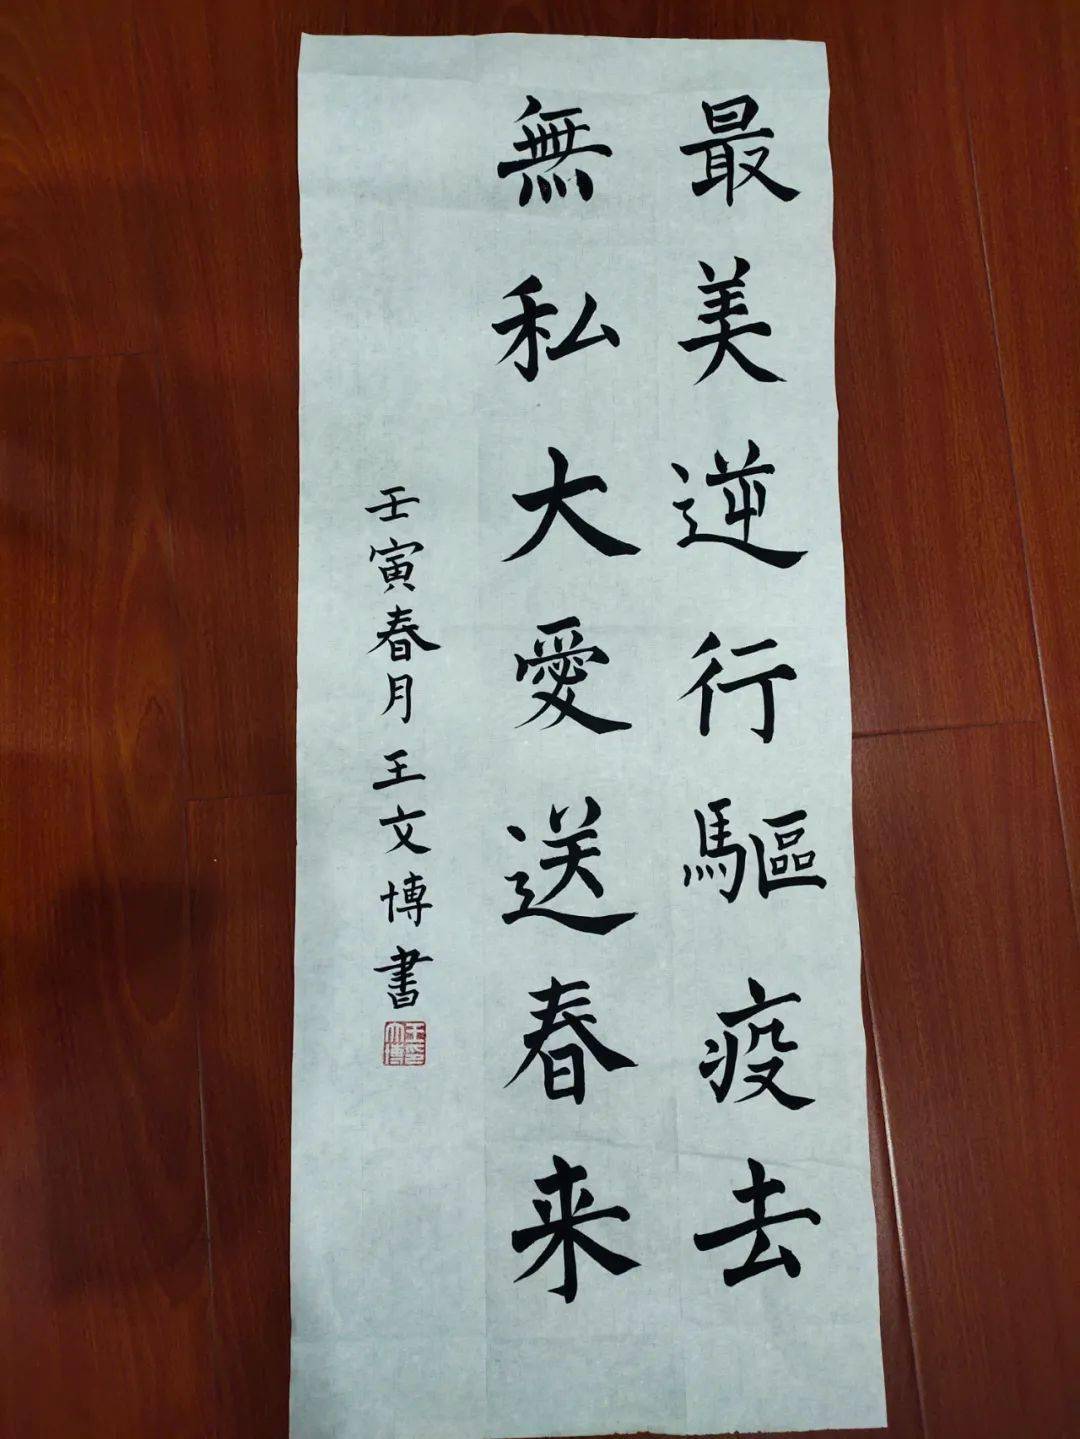 最美逆行驅疫去
無私大愛送春来
壬寅春月王文博書
王文博印